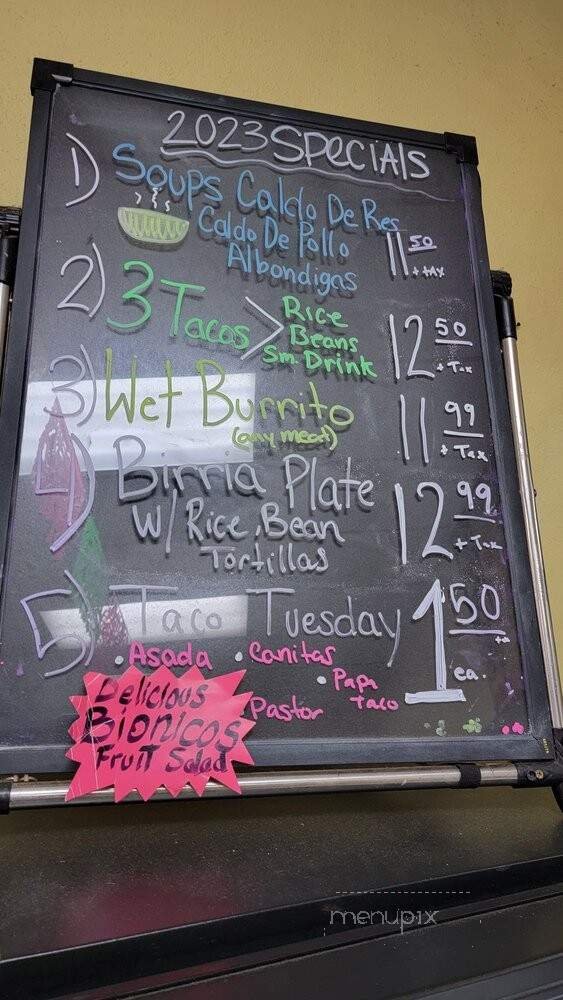 2023 Specials
1) Soups Caldo De Res
Caldo De Pollo
Albondigas
11 50 + tax
2) 3 Tacos > Rice
Beans
Sm. Drink
12 50 + Tax
3) Wet Burrito
(any meat)
11 99 + Tax
4) Birria Plate
W/ Rice, Bean
Tortillas
12 99 + Tax
5) Taco Tuesday
1 50
ea.
• Asada • Canitas
• Papa
Taco
Pastor
Delicious
Bionicos
Fruit Salad
menupix